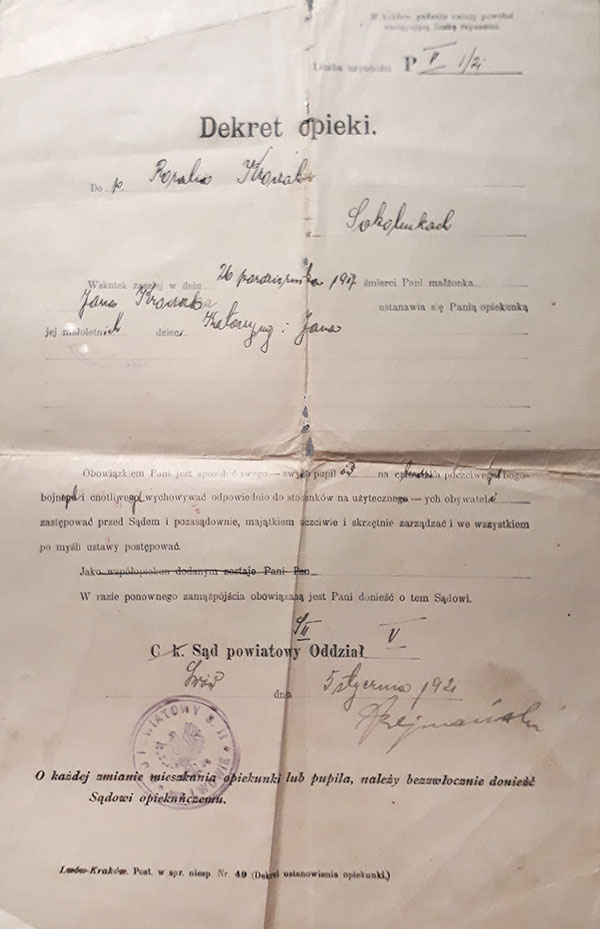 W każdem podaniu należy powołać
następującą liczbę czynności.
Liczba czynności P V 1/21
Dekret opieki.
Do p.
Sokolnikach
Wskutek zaszłej w dniu 26 października 1917 śmierci Pani małżonka
Jana ustanawia się Panią opiekunką
jej małoletnich dzieci Katarzyny i Jana
Obowiązkiem Pani jest sposobić swego — swych pupilów na człowieka poczciwego, bogo-
bojnego i cnotliwego, wychowywać odpowiednio do stosunków na użytecznego — ych obywateli
zastępować przed Sądem i pozasądownie, majątkiem uczciwie i skrzętnie zarządzać i we wszystkiem
po myśli ustawy postępować.
Jako współopiekun dodanym zostaje Pani Pan
W razie ponownego zamążpójścia obowiązaną jest Pani donieść o tem Sądowi.
C. k. Sąd powiatowy SII Oddział V
Lwów dnia 5 stycznia 1921
POWIATOWY S. II
O każdej zmianie mieszkania opiekunki lub pupila, należy bezzwłocznie donieść
Sądowi opiekuńczemu.
Lwów-Kraków. Post. w spr. niesp. Nr. 49 (Dekret ustanowienia opiekunki.)